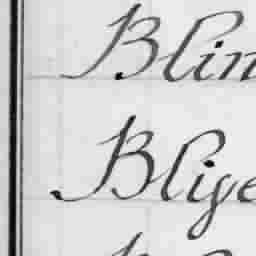 Blin
Blige